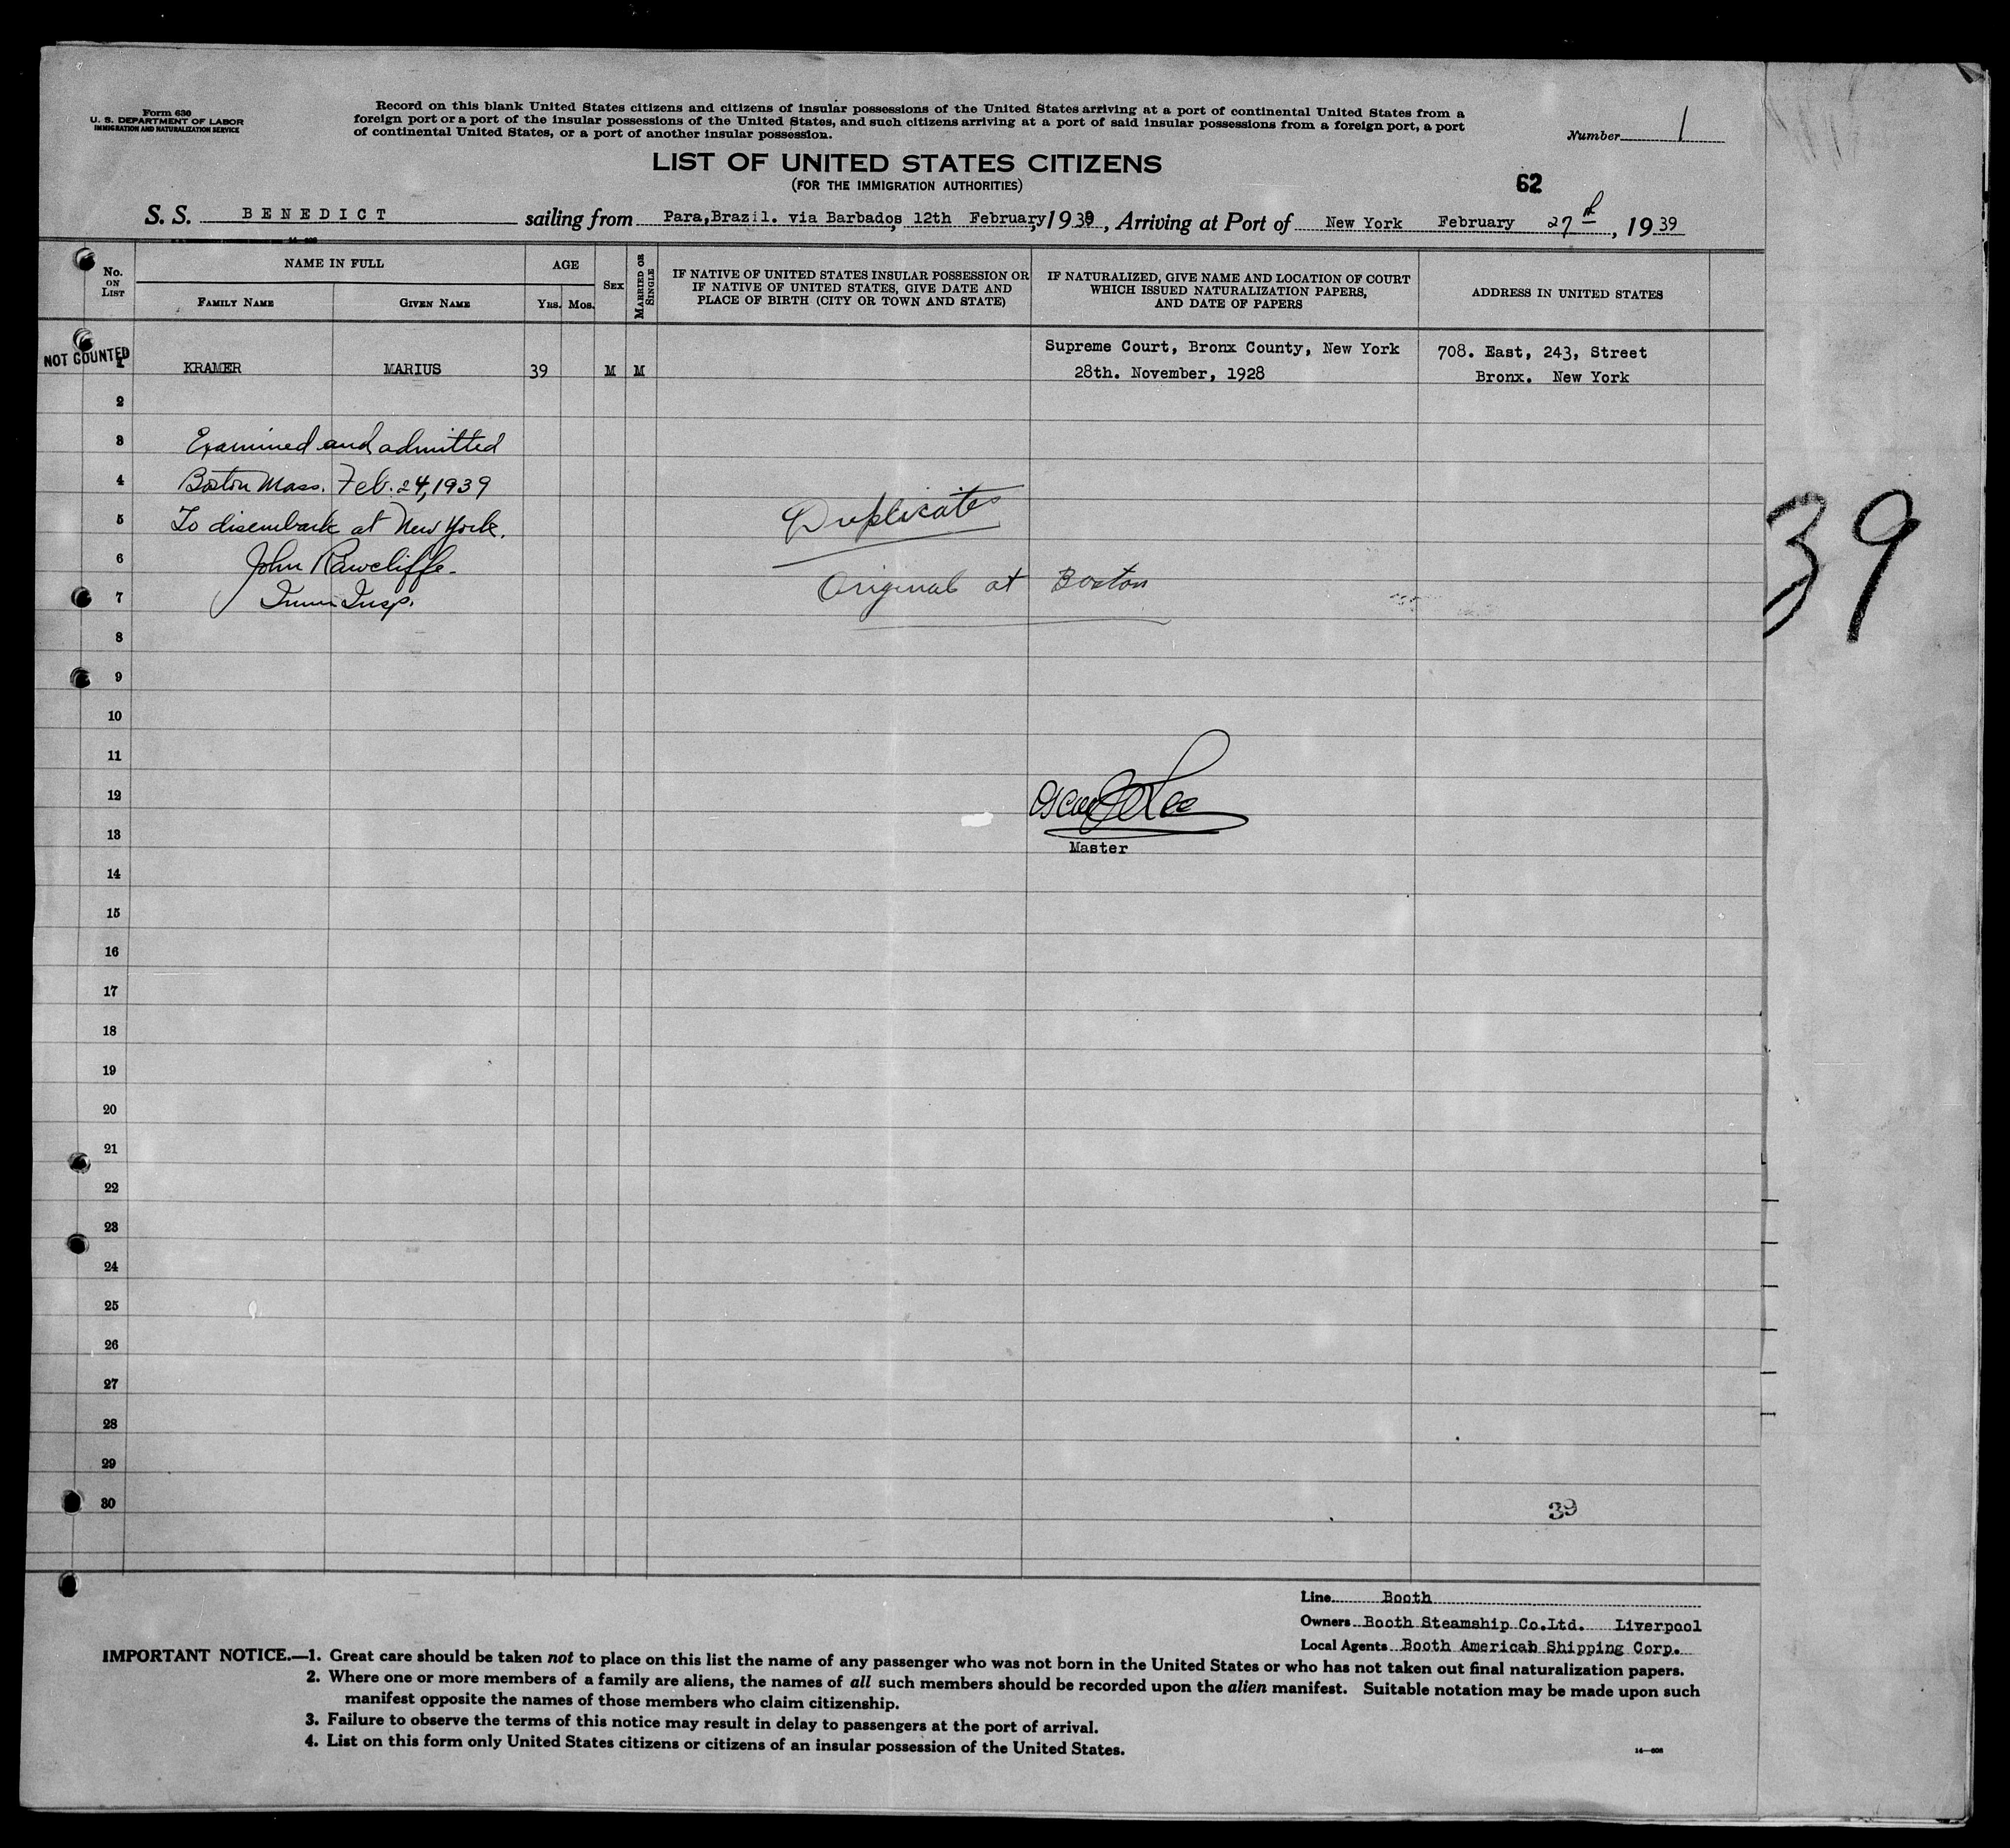 Form 630
U. S. DEPARTMENT OF LABOR
IMMIGRATION AND NATURALIZATION SERVICE
Record on this blank United States citizens and citizens of insular possessions of the United States arriving at a port of continental United States from a
foreign port or a port of the insular possessions of the United States, and such citizens arriving at a port of said insular possessions from a foreign port, a port
of continental United States, or a port of another insular possession.
Number 1
LIST OF UNITED STATES CITIZENS
(FOR THE IMMIGRATION AUTHORITIES)
62
S. S. BENEDICT sailing from Para,Brazil. via Barbados, 12th February, 1939, Arriving at Port of New York February 27th, 1939
No. ON LIST
NAME IN FULL
FAMILY NAME
GIVEN NAME
AGE
YRS. MOS.
SEX
MARRIED OR SINGLE
IF NATIVE OF UNITED STATES INSULAR POSSESSION OR
IF NATIVE OF UNITED STATES, GIVE DATE AND
PLACE OF BIRTH (CITY OR TOWN AND STATE)
IF NATURALIZED, GIVE NAME AND LOCATION OF COURT
WHICH ISSUED NATURALIZATION PAPERS,
AND DATE OF PAPERS
ADDRESS IN UNITED STATES
NOT COUNTED
1 KRAMER MARIUS 39 M M
Supreme Court, Bronx County, New York
28th. November, 1928
708. East, 243, Street
Bronx. New York
2
3 Examined and admitted
4 Boston Mass. Feb. 24, 1939
5 To disembark at New York.
6 John Rawcliffe
7 Imm Insp.
Duplicate
Original at Boston
39
8
9
10
11
12
Oscar J Lee
13
Master
14
15
16
17
18
19
20
21
22
23
24
25
26
27
28
29
30
39
Line Booth
Owners Booth Steamship Co.Ltd. Liverpool
Local Agents Booth American Shipping Corp.
IMPORTANT NOTICE.—1. Great care should be taken not to place on this list the name of any passenger who was not born in the United States or who has not taken out final naturalization papers.
2. Where one or more members of a family are aliens, the names of all such members should be recorded upon the alien manifest. Suitable notation may be made upon such
manifest opposite the names of those members who claim citizenship.
3. Failure to observe the terms of this notice may result in delay to passengers at the port of arrival.
4. List on this form only United States citizens or citizens of an insular possession of the United States.
14—608